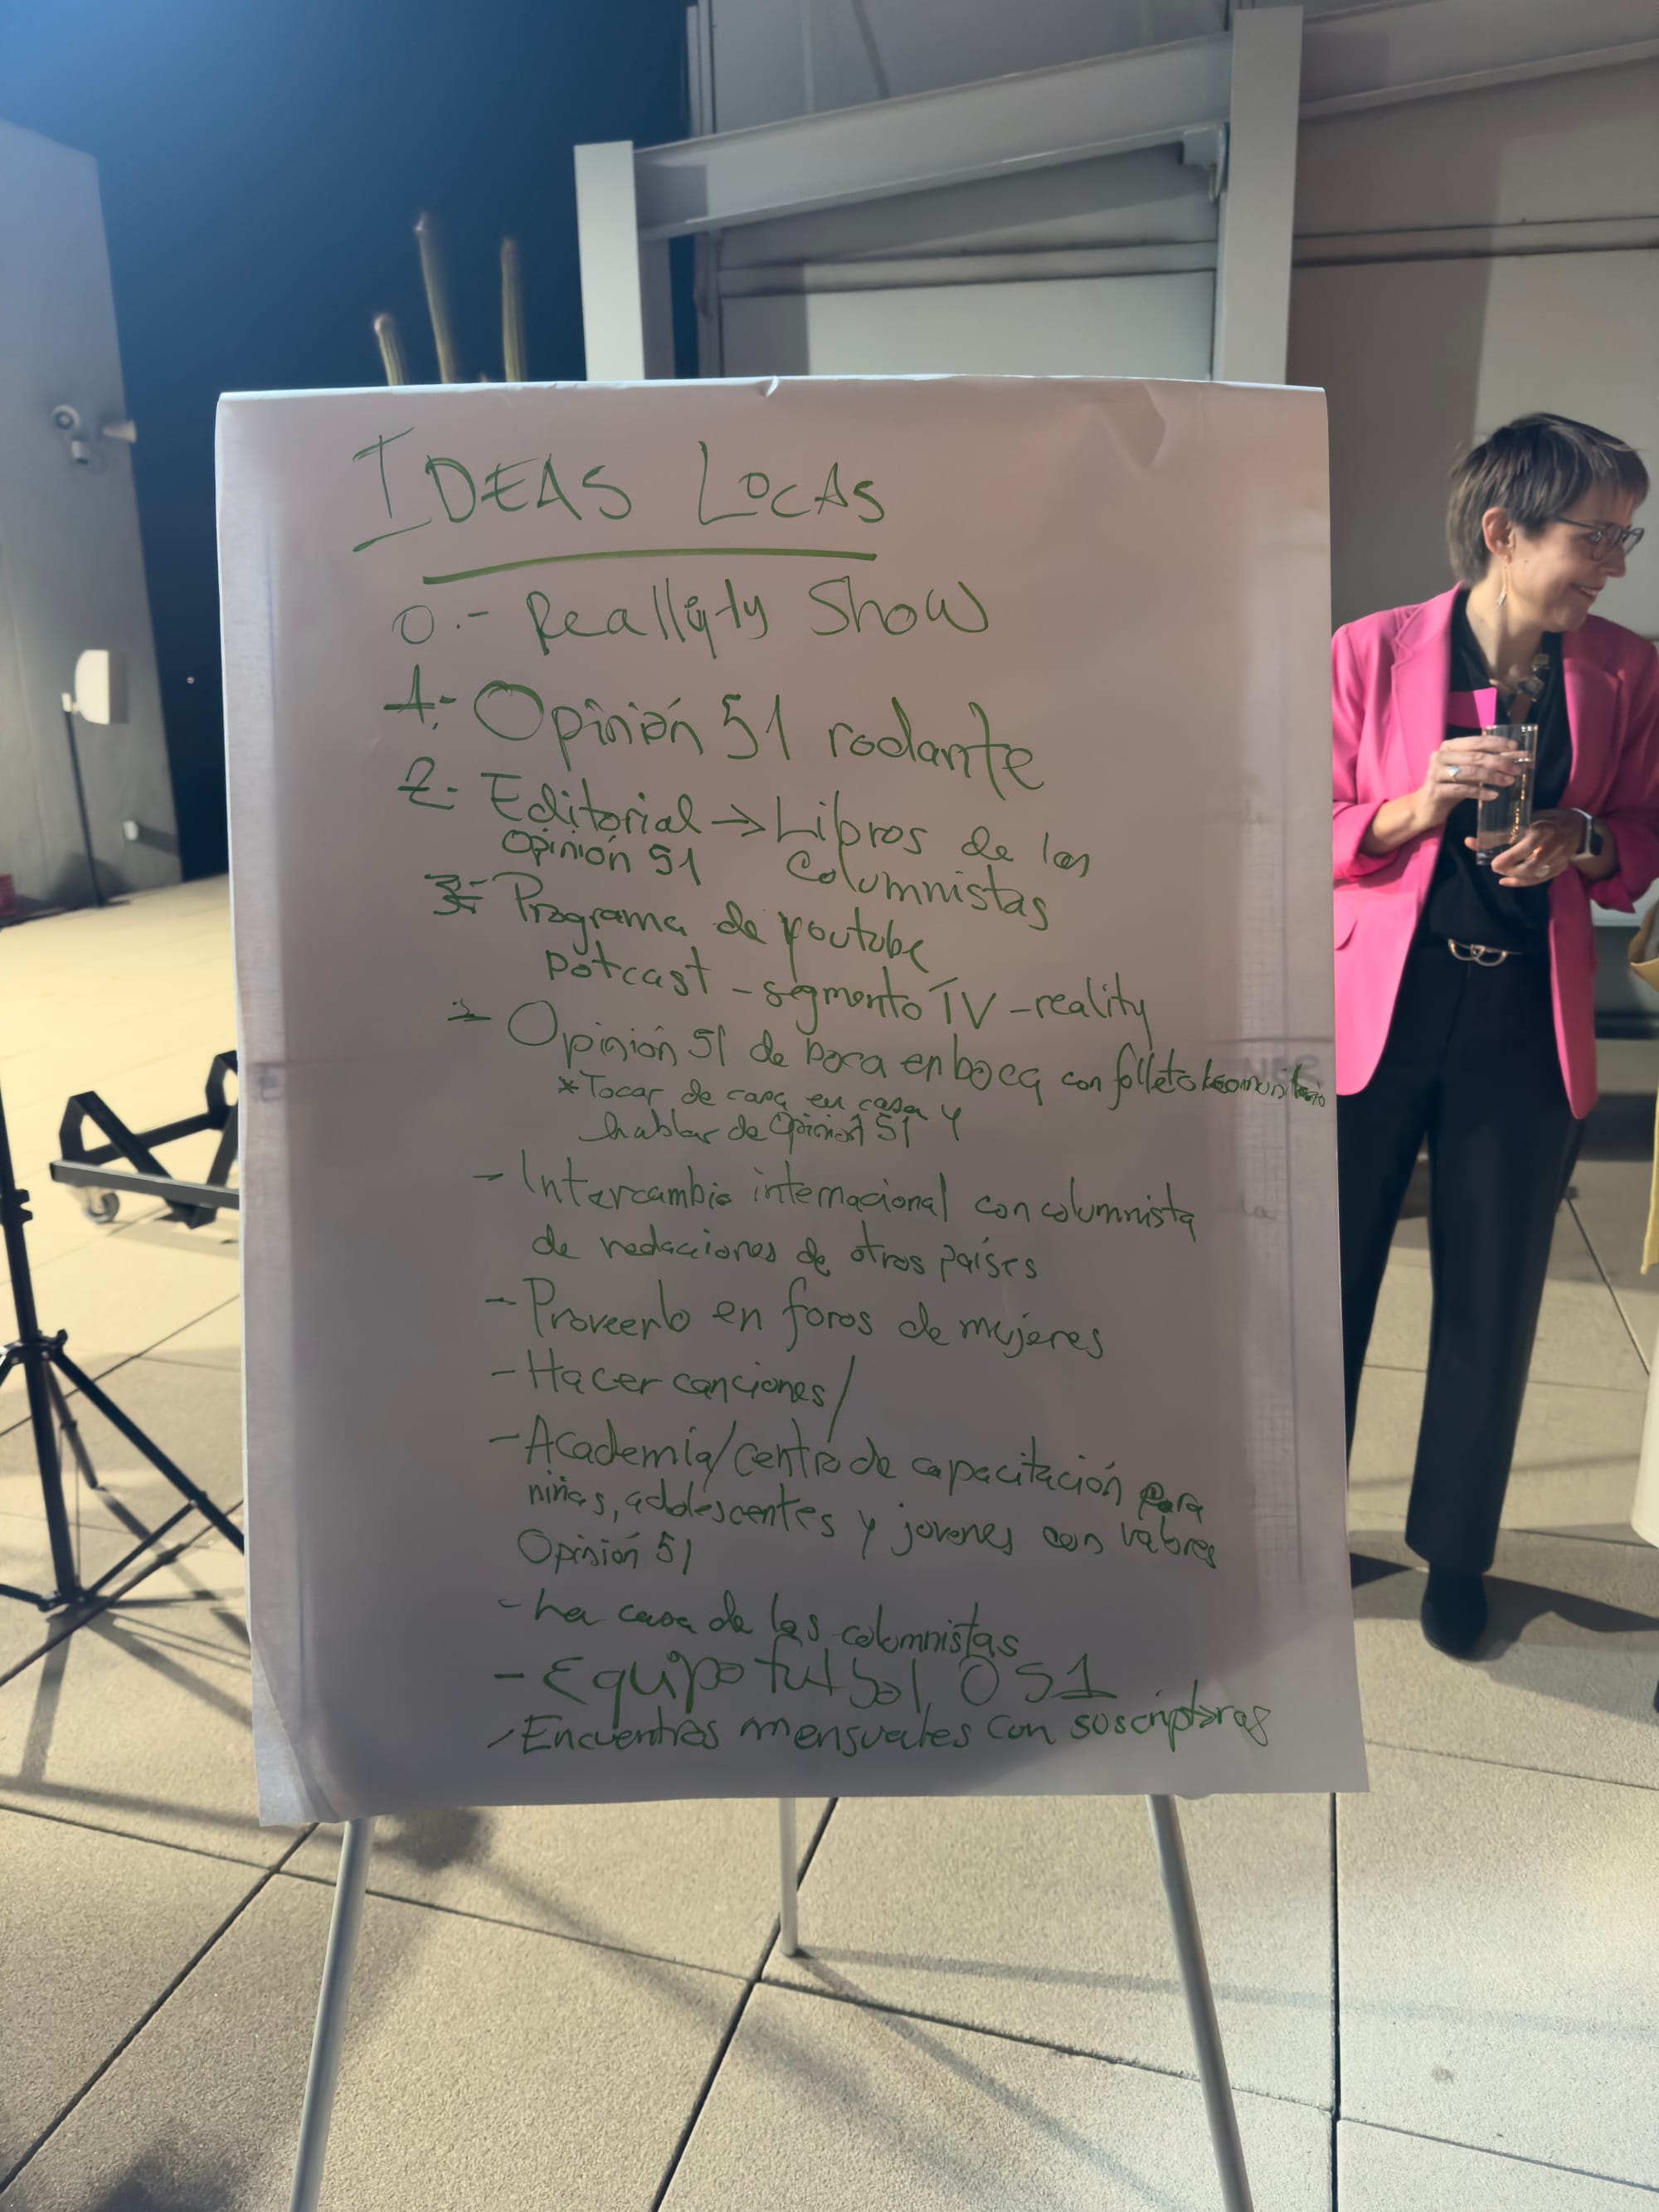 IDEAS LOCAS
0.- Reallity Show
1.- Opinión 51 rodante
2.- Editorial → Libros de las
Opinión 51 Columnistas
3.- Programa de youtube
potcast - segmento TV - reality
- Opinión 51 de boca en boca con folleto
* Tocar de casa en casa y
hablar de Opinión 51
- Intercambio internacional con columnista
de redacciones de otros países
- Proveerlo en foros de mujeres
- Hacer canciones/
- Academia/centro de capacitación para
niñas, adolescentes y jovenes con valores
Opinión 51
- La casa de las columnistas
- Equipo futbol O51
- Encuentros mensuales con suscriptoras